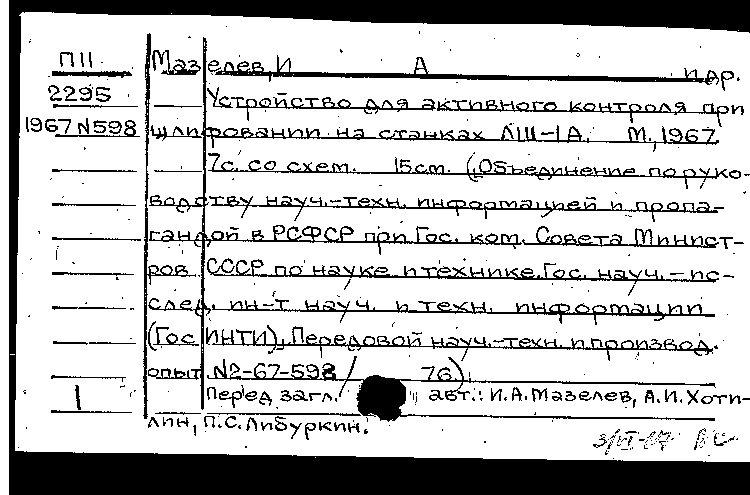 П11 Мазелев, И А и др.
2295 Устройство для активного контроля при
1967 N598 шлифовании на станках ЛШ-1А. М., 1967
7с. со схем. 15см. (Объединение по руко-
водству науч.-техн. информацией и пропа-
гандой в РСФСР при Гос. ком. Совета Минист-
ров СССР по науке и технике. Гос. науч.-ис-
след. ин-т науч. и техн. информации
(ГосИНТИ), Передовой науч.-техн. и производ.
опыт. №2-67-598/76)
1 Перед загл. авт.: И.А. Мазелев, А.И. Хоти-
лин, П.С. Либуркин.